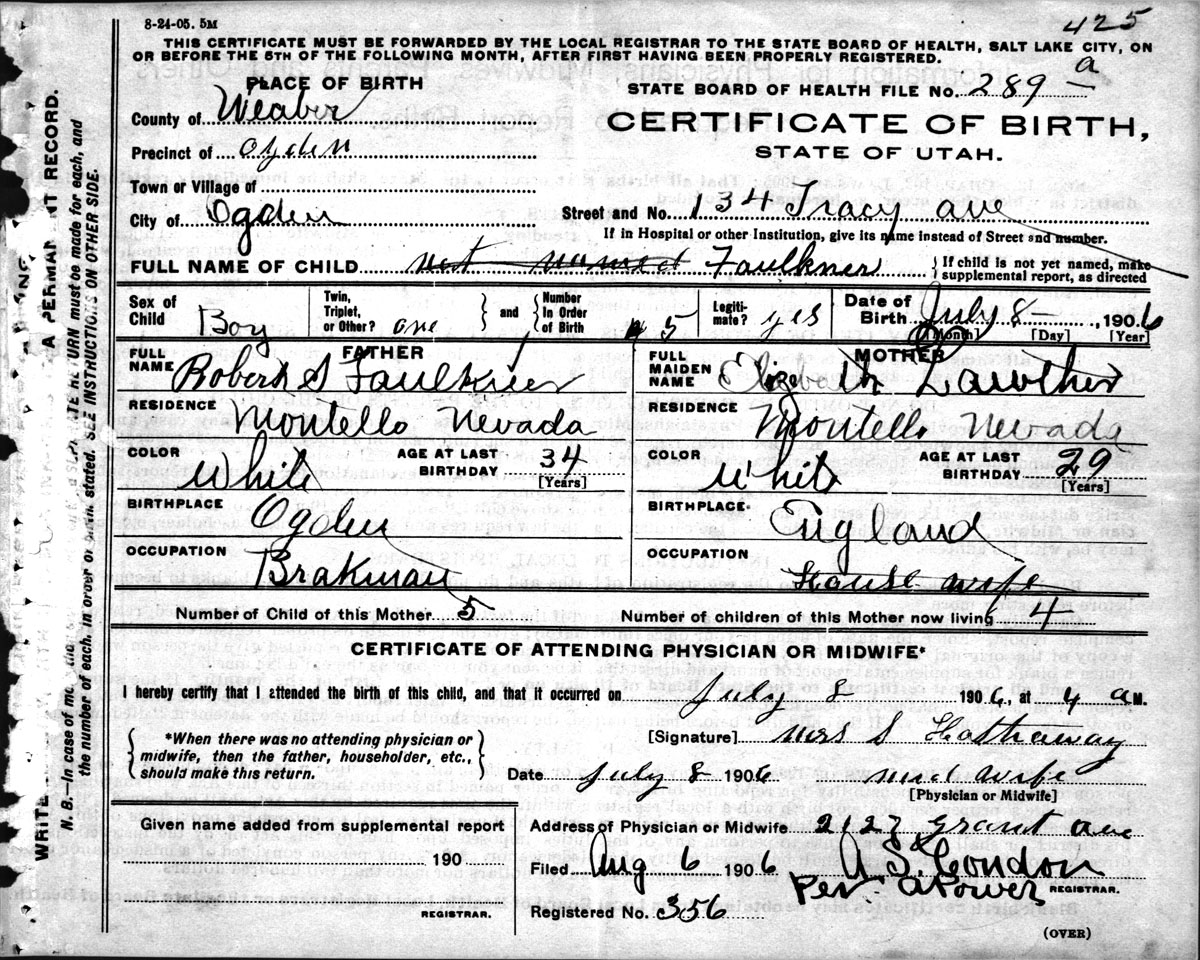 8-24-05. 5M
425
THIS CERTIFICATE MUST BE FORWARDED BY THE LOCAL REGISTRAR TO THE STATE BOARD OF HEALTH, SALT LAKE CITY, ON
OR BEFORE THE 5TH OF THE FOLLOWING MONTH, AFTER FIRST HAVING BEEN PROPERLY REGISTERED.
PLACE OF BIRTH
STATE BOARD OF HEALTH FILE No. 289 a
County of Weaber
CERTIFICATE OF BIRTH,
Precinct of Ogden
STATE OF UTAH.
Town or Village of
City of Ogden
Street and No. 134 Tracy ave
If in Hospital or other Institution, give its name instead of Street and number.
FULL NAME OF CHILD not named Faulkner
If child is not yet named, make
supplemental report, as directed
Sex of Child Boy
Twin, Triplet, or Other? one
and
Number In Order of Birth 5
Legiti- mate? yes
Date of Birth July 8 1906
[Month] [Day] [Year]
FATHER
FULL NAME Robert S Faulkner
RESIDENCE Montello Nevada
COLOR White
AGE AT LAST BIRTHDAY 34
[Years]
BIRTHPLACE Ogden
OCCUPATION Brakman
MOTHER
FULL MAIDEN NAME Elizabeth Lawther
RESIDENCE Montello Nevada
COLOR White
AGE AT LAST BIRTHDAY 29
[Years]
BIRTHPLACE England
OCCUPATION House wife
Number of Child of this Mother 5
Number of children of this Mother now living 4
CERTIFICATE OF ATTENDING PHYSICIAN OR MIDWIFE*
I hereby certify that I attended the birth of this child, and that it occurred on July 8 1906, at 4 a M.
*When there was no attending physician or
midwife, then the father, householder, etc.,
should make this return.
[Signature] Mrs S Hathaway
Date July 8 1906 mid wife
[Physician or Midwife]
Given name added from supplemental report
190
REGISTRAR.
Address of Physician or Midwife 2127 Grant ave
Filed Aug 6 1906 S. Condon
Per. A Power REGISTRAR.
Registered No. 356
(OVER)
WRITE
A PERMANENT RECORD.
N. B.—In case of
RETURN must be made for each, and
the number of each, in order of birth, stated. SEE INSTRUCTIONS ON OTHER SIDE.